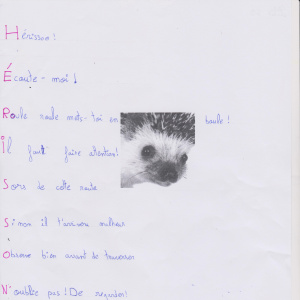 Hérisson !
Écoute - moi !
Roule roule mets-toi en boule !
Il faut faire attention !
Sors de cette route
Sinon il t'arrivera malheur
Observe bien avant de traverser
N'oublie pas ! De regarder !